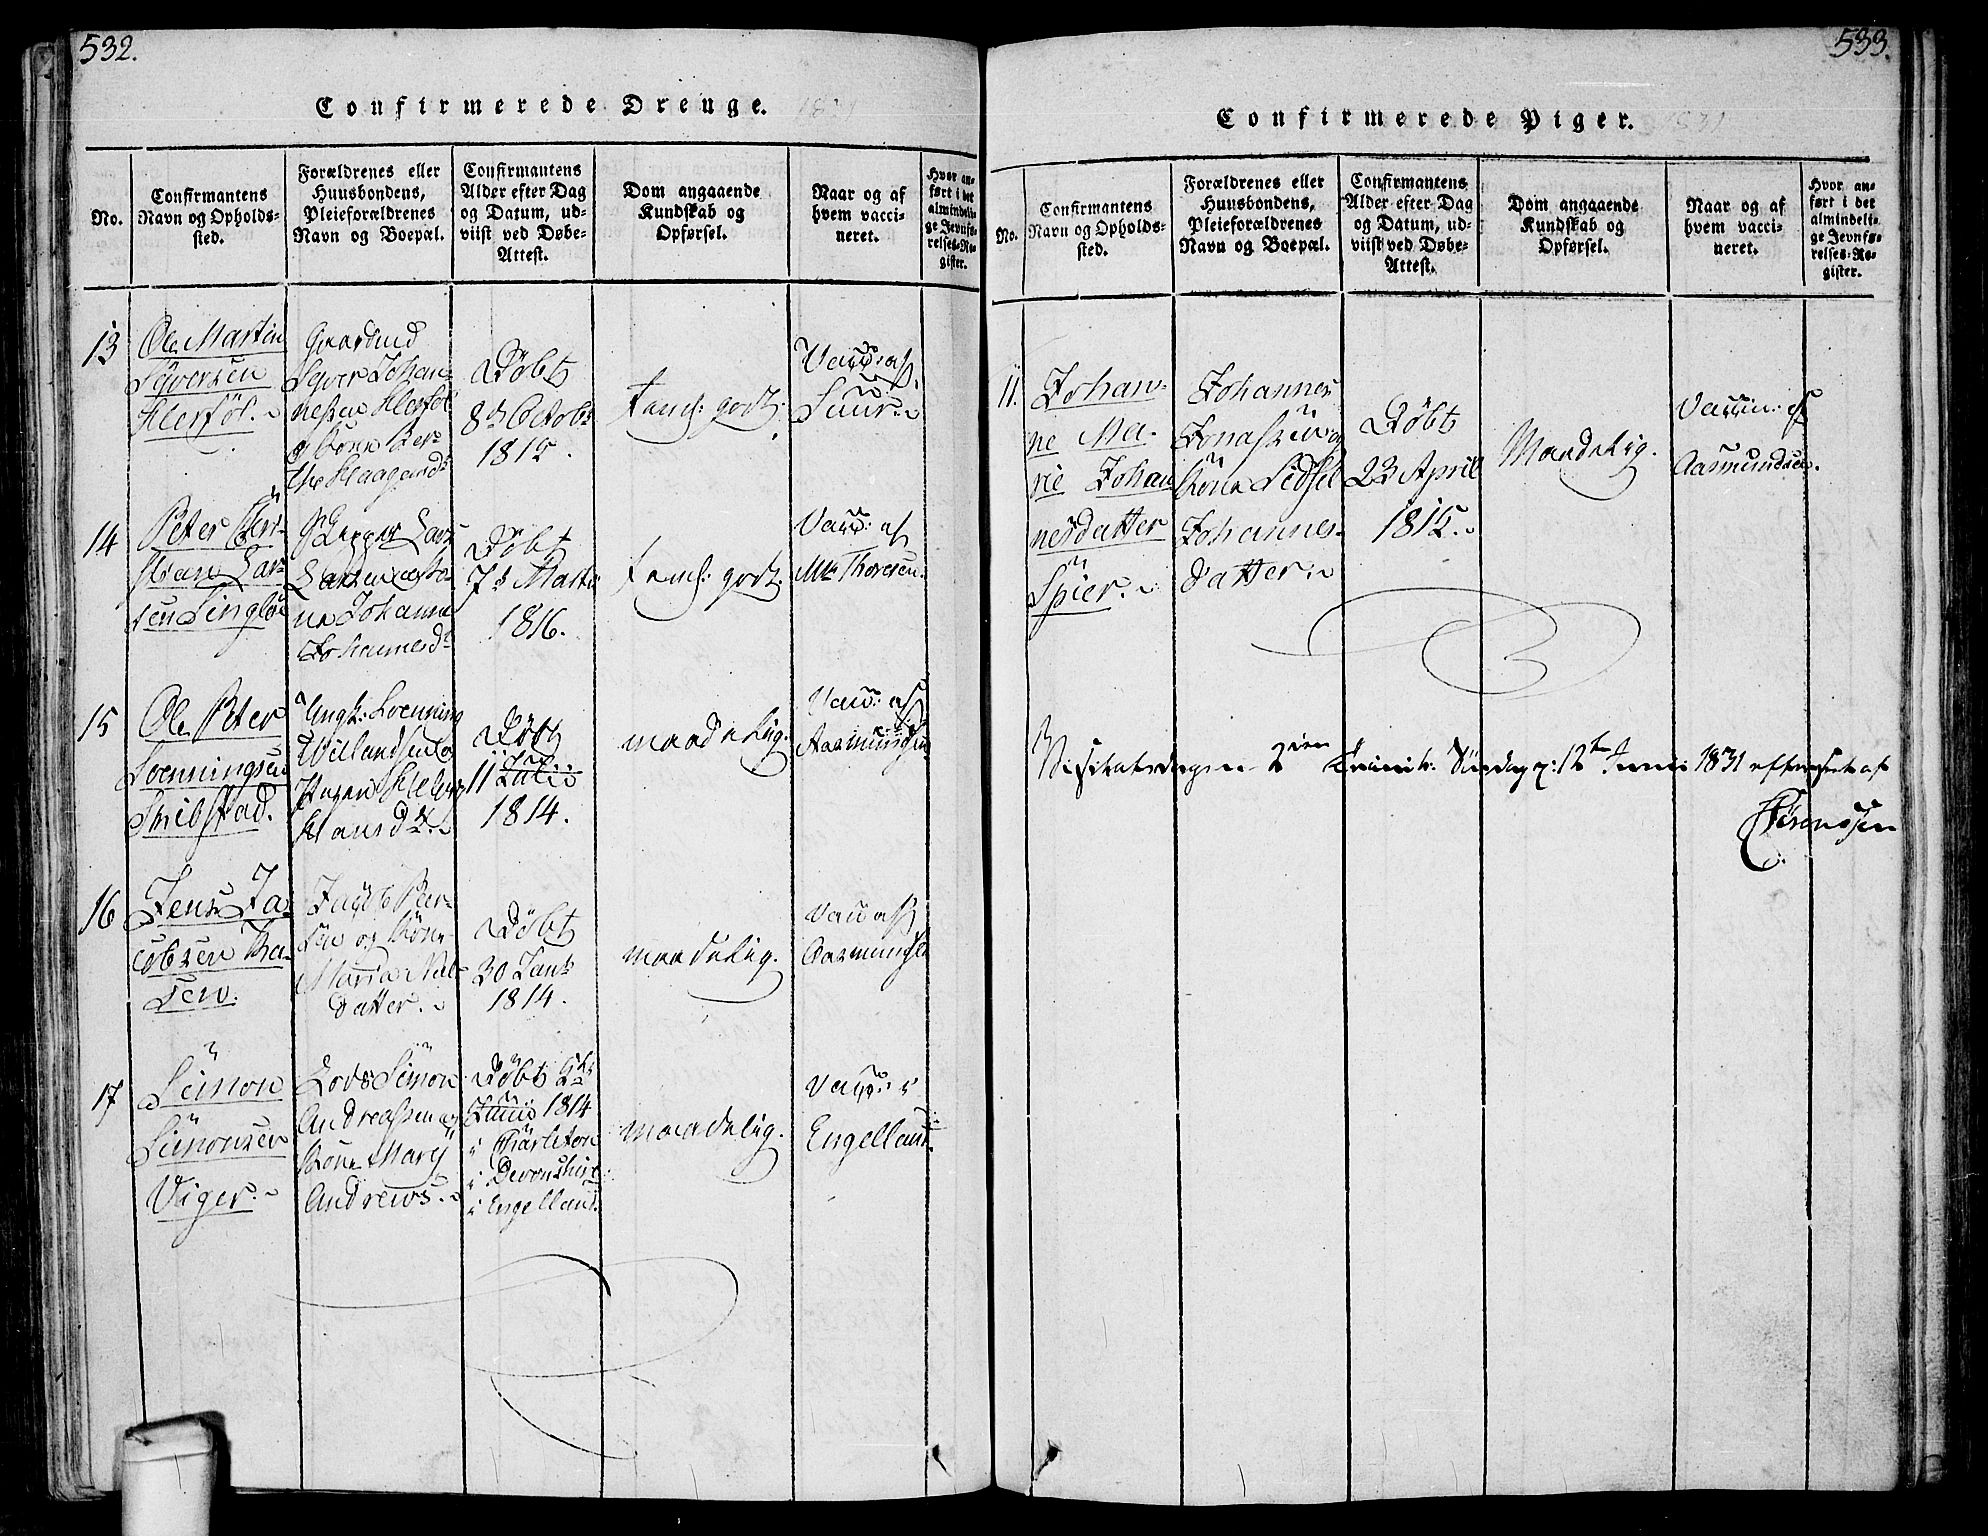 532.
Confirmerede Drenge. 1831
No.
Confirmantens
Navn og Opholds-
sted.
Forældrenes eller
Huusbondens,
Pleieforældrenes
Navn og Boepæl.
Confirmantens
Alder efter Dag
og Datum, ud-
viist ved Døbe-
Attest.
Dom angaaende
Kundskab og
Opførsel.
Naar og af
hvem vacci-
neret.
Hvor an-
ført i det
almindeli-
ge Jevnfø-
relses-Re-
gister.
13
Ole Martin
Syversen
Herføl.
Gaardmd
Syver Johan-
nesen Herføl
og Kone Ber-
the Haagensd
Døbt
8de Octobr
1815.
temel: godt.
Vacc: af
14
Peter
stian Lar-
sen Singløe
Lars
Larsen og Ko-
ne Johanne
Johannesd
Døbt
7de Marts
1816.
temel: godt.
Vacc: af
Mm Thoresen.
15
Ole Peter
Loenningsen
Skibstad.
Ungk: Loenning
Willandsen og
Hansd.
Døbt
11 Julii
1814.
maadelig.
Vacc: af
Aasmundsen
16
Jens Ja-
cobsen
Jacob Peer-
sen og Kone
Maria
datter.
Døbt
30 Janr
1814.
maadelig.
Vacc af
Aasmundsen
17
Simon
Simonsen
Viger.
Lods Simon
Andreassen og
Kone Mary
Andrews.
Døbt
Junii 1814
i Charleton
i Devonshire
i Engelland.
maadelig.
Vacc: i
Engelland.
533.
Confirmerede Piger. 1831
No.
Confirmantens
Navn og Opholds-
sted.
Forældrenes eller
Huusbondens,
Pleieforældrenes
Navn og Boepæl.
Confirmantens
Alder efter Dag
og Datum, ud-
viist ved Døbe-
Attest.
Dom angaaende
Kundskab og
Opførsel.
Naar og af
hvem vacci-
neret.
Hvor an-
ført i det
almindeli-
ge Jevnfø-
relses-Re-
gister.
11.
Johan-
ne Ma-
rie Johan
nesdatter
Spier.
Johannes
Jonassen og
Kone Sidsel
Johannes-
datter.
Døbt
23 April
1815.
Maadelig.
Vaccin: af
Aasmundsen.
Visitatsdagen 2den Trinit: Søndag 12te Junii 1831 efterseet af
Sørenssen